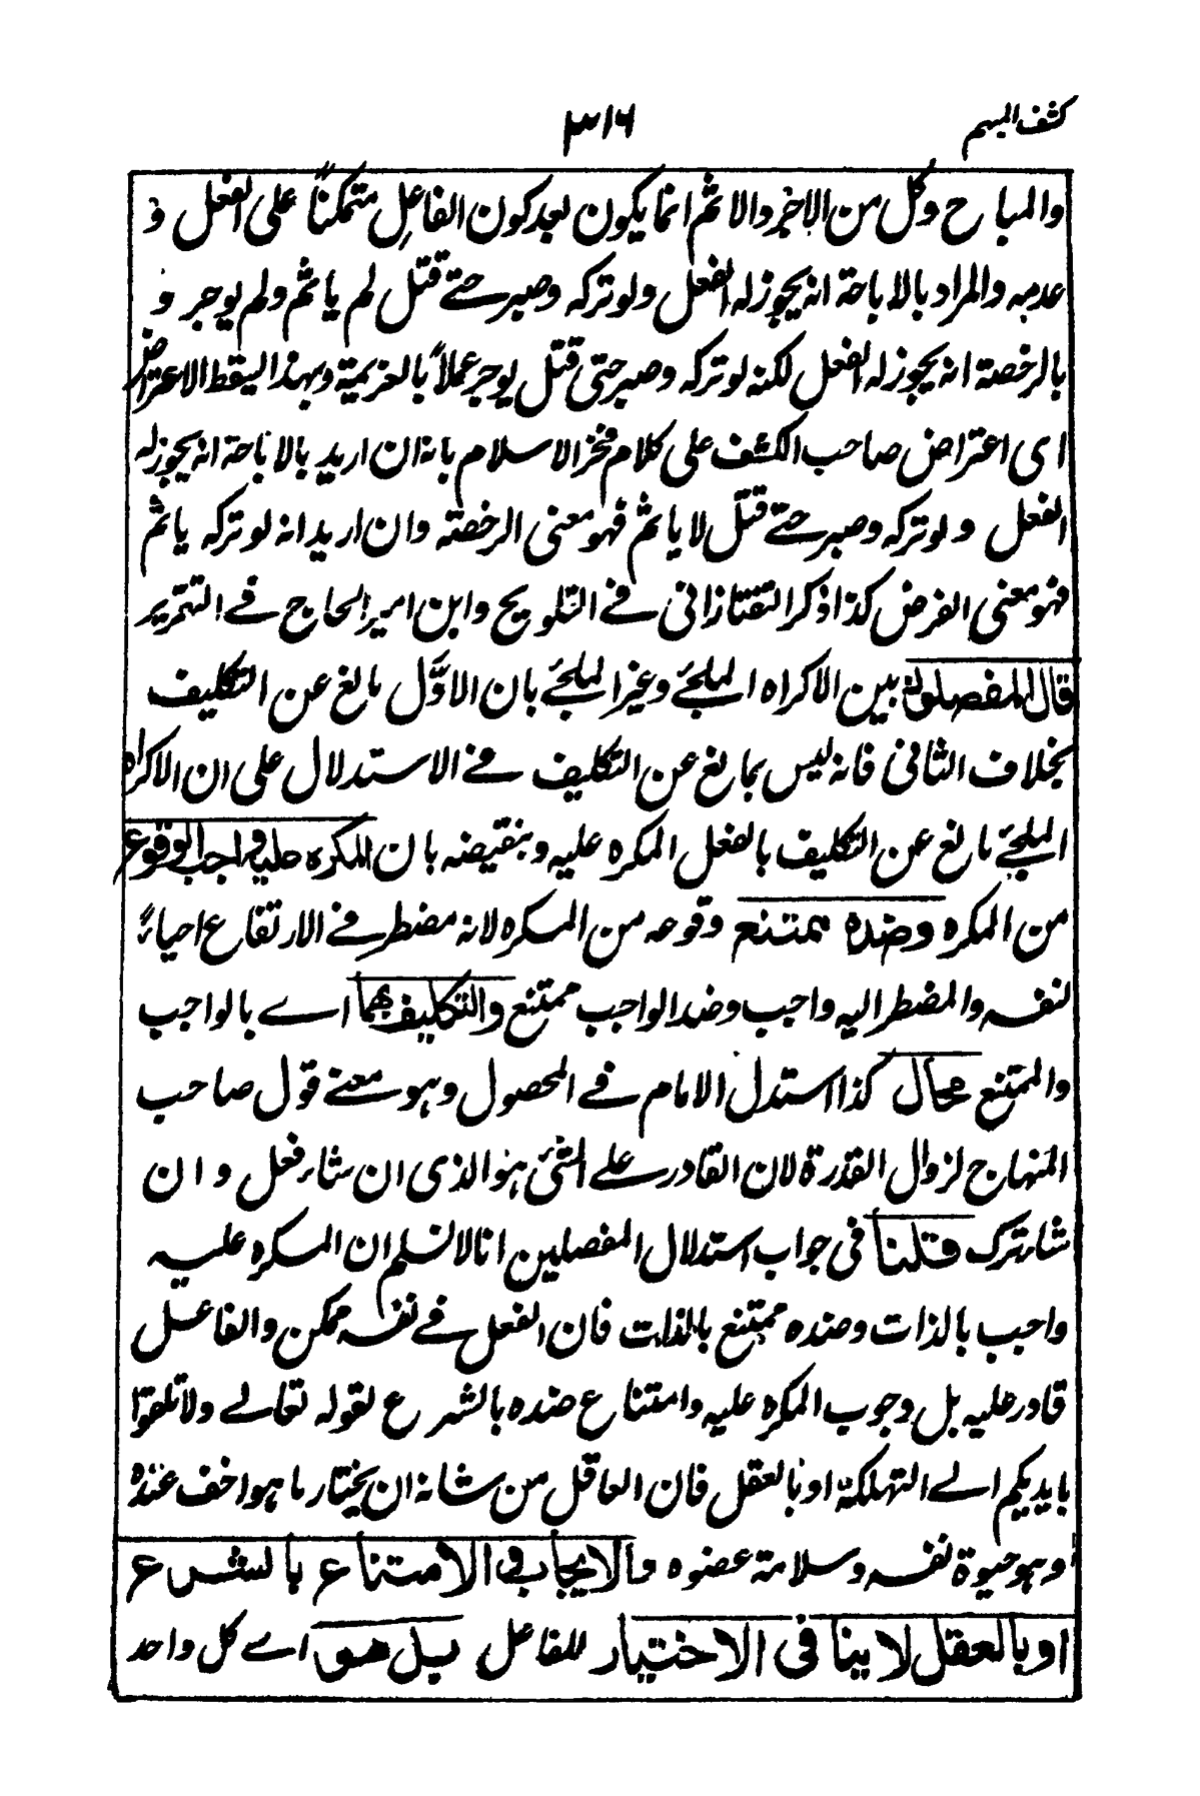 كشف المبهم
٣١٦
والمباح وكل من الاجر والاثم انما يكون بعد كون الفاعل متمكنًا على الفعل و
عدمه والمراد بالاباحة انه يجوز له الفعل ولو تركه وصبر حتے قتل لم ياثم ولم يوجر و
بالرخصة انه يجوز له الفعل لكنه لو تركه وصبر حتى قتل يوجر عملاً بالعزيمة وبهذا اليقط الاعتراض
اى اعتراض صاحب الكشف على كلام فخر الاسلام بانه ان اريد بالاباحة انه يجوز له
الفعل ولو تركه وصبر حتے قتل لا ياثم فهو معنى الرخصة وان اريد انه لو تركه ياثم
فهو معنى الفرض كذا ذكر التفتازانى فے التلويح وابن امير الحاج فے التحرير
قال المفصلون بين الاكراه الملجئ وغير الملجئ بان الاوّل مانع عن التكليف
بخلاف الثانى فانه ليس بمانع عن التكليف فے الاستدلال على ان الاكراه
الملجئ مانع عن التكليف بالفعل المكره عليه وبنقيضه بان المكره عليه واجب الوقوع
من المكره وضده ممتنع وقوعه من المكره لانه مضطر فے الارتفاع احياءً
لنفسه والمضطر اليه واجب وضد الواجب ممتنع والتكليف بهما اے بالواجب
والممتنع محال كذا استدل الامام فے المحصول وهو معنے قول صاحب
المنهاج لزوال القدرة لان القادر علے الشئ هو الذى ان شاء فعل وان
شاء ترك قلنا فى جواب استدلال المفصلين انا لا نسلم ان المكره عليه
واجب بالذات وضده ممتنع بالذات فان الفعل فے نفسه ممكن والفاعل
قادر عليه بل وجوب المكره عليه وامتناع ضده بالشرع لقوله تعالے ولا تلقوا
بايديكم الے التهلكة او بالعقل فان العاقل من شانه ان يختار ما هو اخف عنده
وهو حيوة نفسه وسلامة عضوه والايجاب فى الامتناع بالشرع
او بالعقل لا ينافى الاختيار للفاعل بل هو اے كل واحد